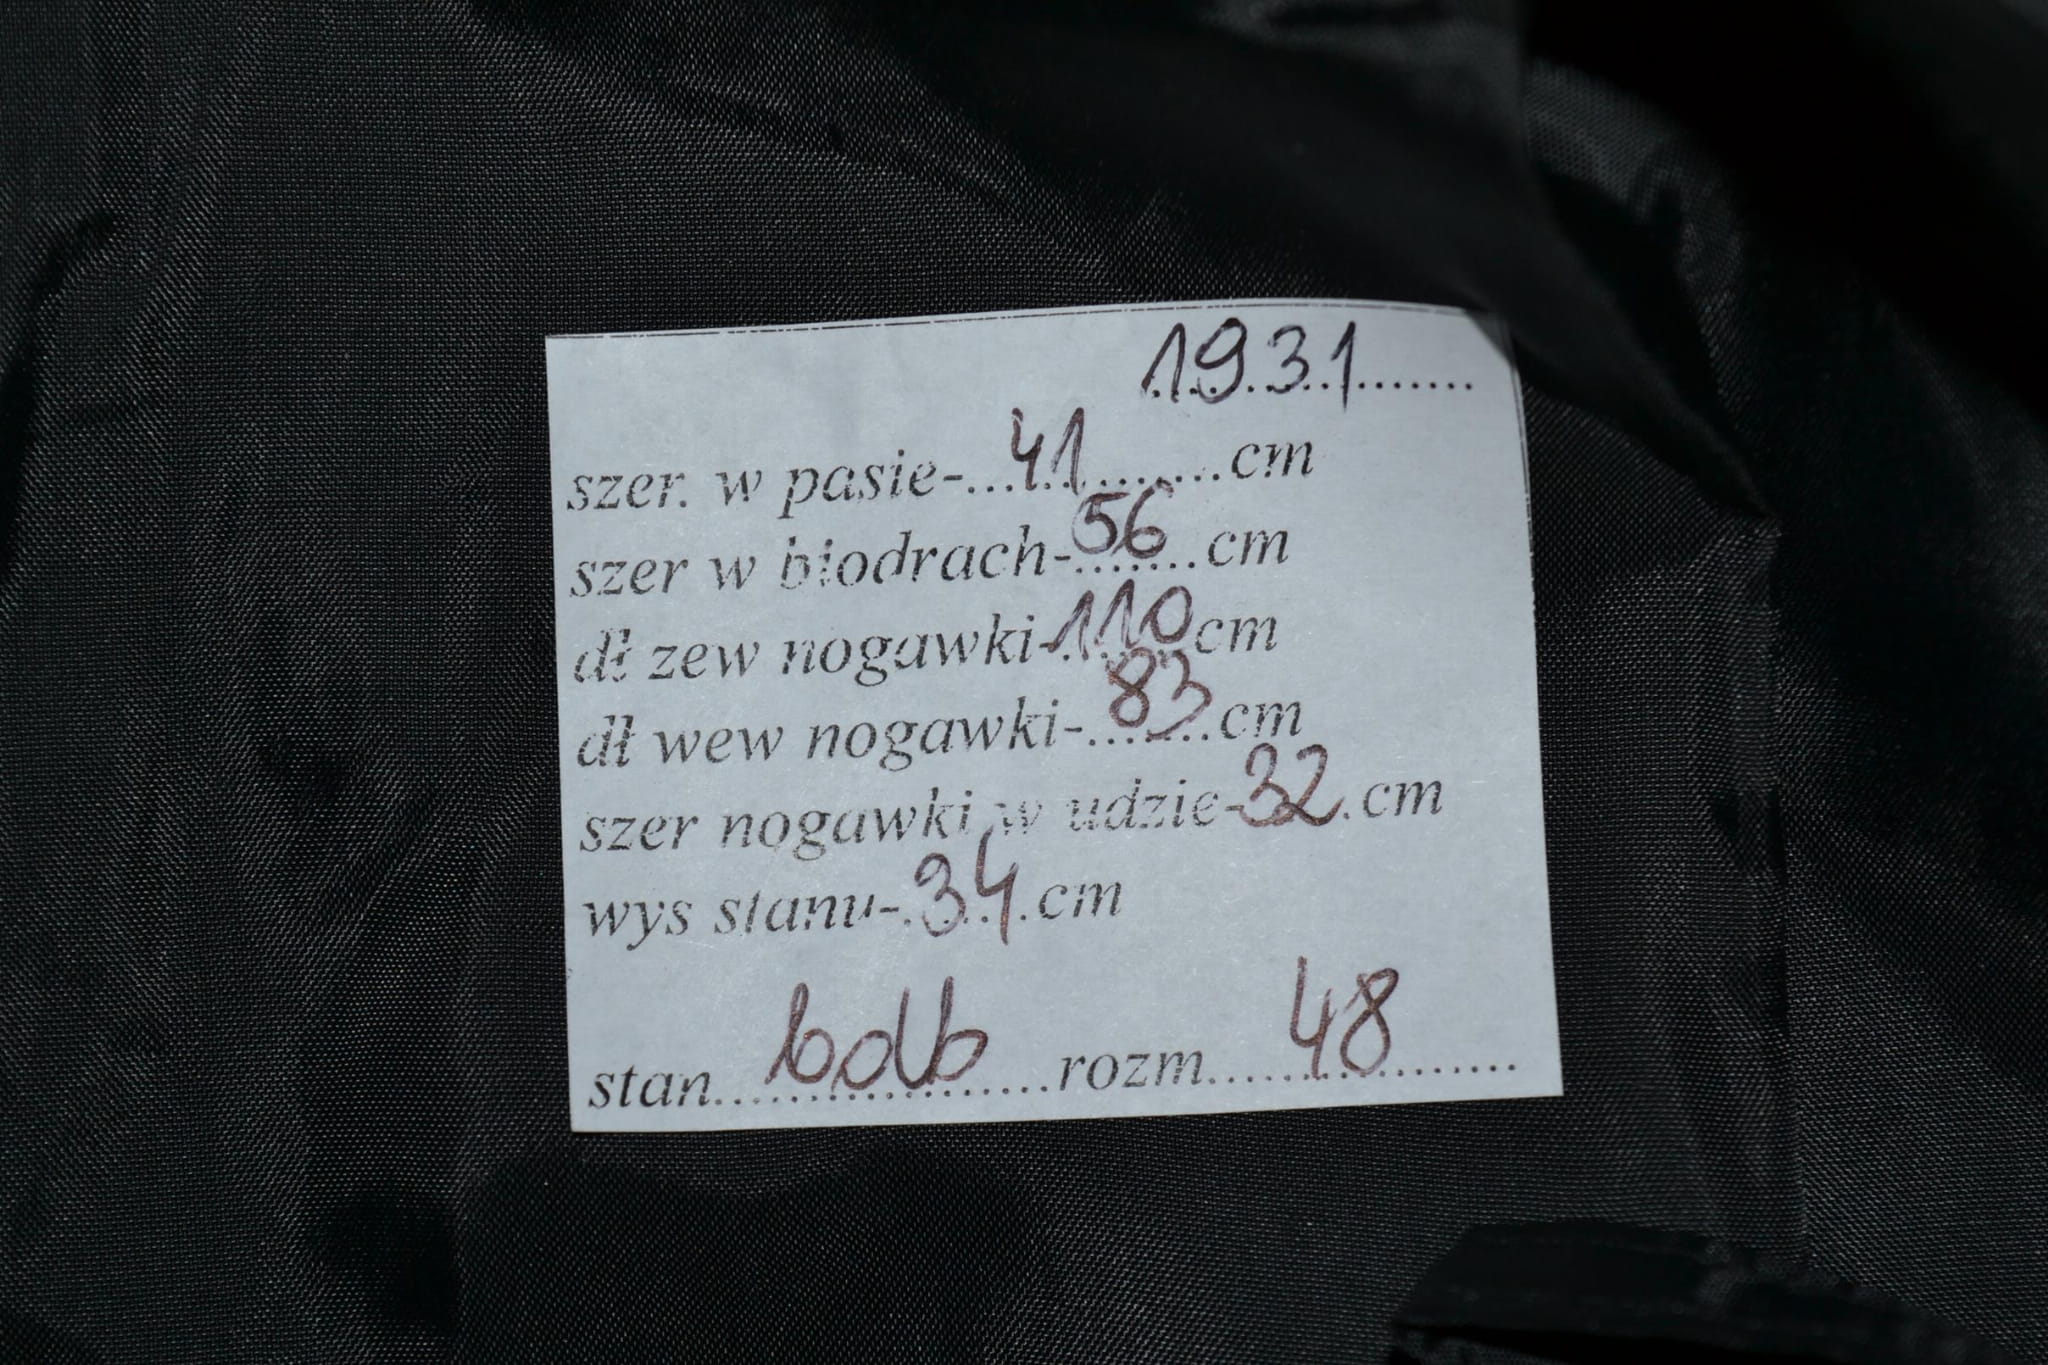 1931
szer. w pasie-...41........cm
szer w biodrach-56.......cm
dł zew nogawki-110cm
dł wew nogawki-.83......cm
szer nogawki w udzie-32.cm
wys stanu-.34.cm
stan....bdb....rozm....48........